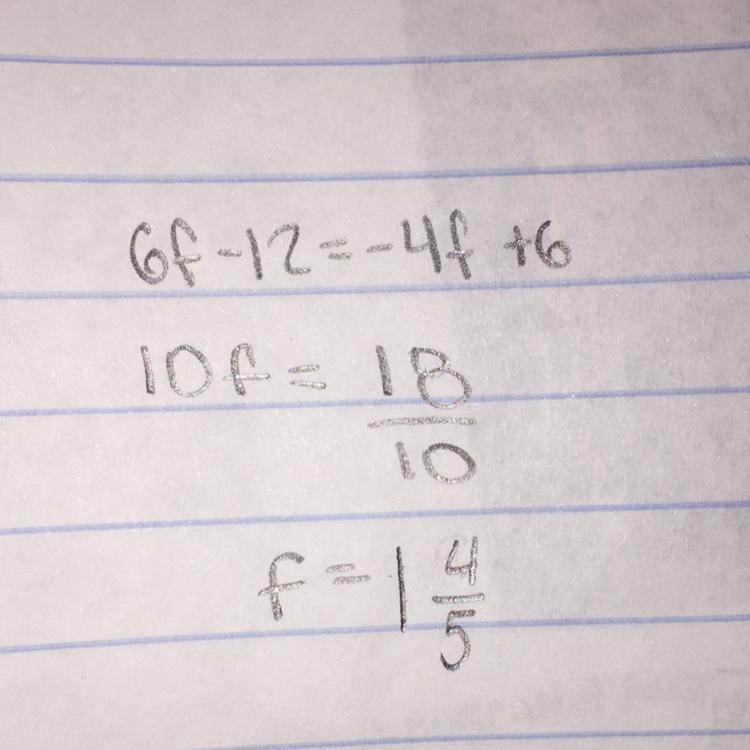 6f - 12 = -4f + 6
10f = 18/10
f = 1 4/5